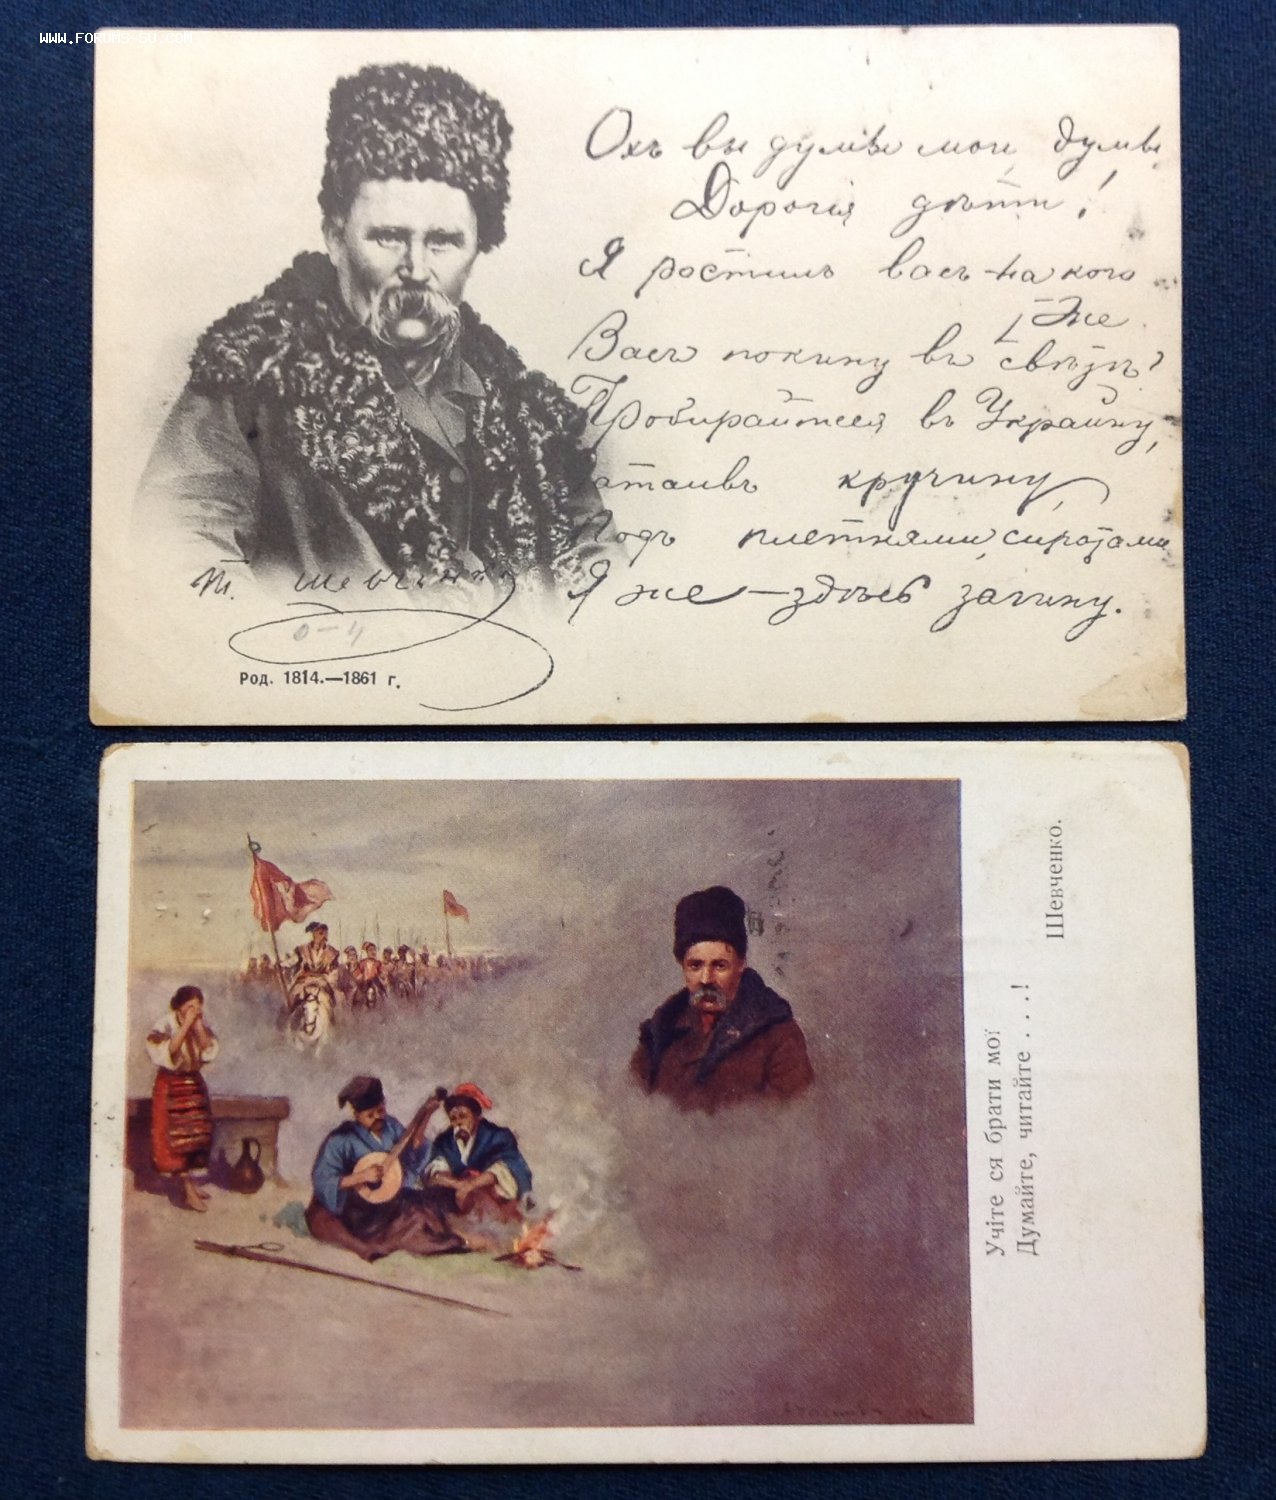 www.forums-su.com
Охъ вы думы мои, думы
Дорогія дѣти!
Я ростилъ васъ на кого
же
Васъ покину въ свѣтѣ?
Пробирайтеся въ Украйну,
Затаивъ кручину,
Подъ плетнями, сиротами
Я же — здѣсь загину.
Т. Шевченко
0-4
Род. 1814.—1861 г.
Учіте ся брати мої
Думайте, читайте . . . !
Шевченко.